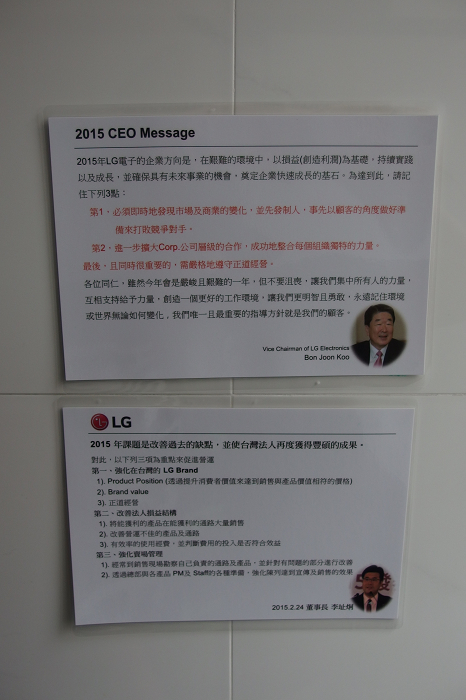 2015 CEO Message
2015年LG電子的企業方向是，在艱難的環境中，以損益(創造利潤)為基礎，持續實踐
以及成長，並確保具有未來事業的機會，奠定企業快速成長的基石。為達到此，請記
住下列3點：
第1，必須即時地發現市場及商業的變化，並先發制人，事先以顧客的角度做好準
備來打敗競爭對手。
第2，進一步擴大Corp.公司層級的合作，成功地整合每個組織獨特的力量。
最後，且同時很重要的，需嚴格地遵守正道經營。
各位同仁，雖然今年會是嚴峻且艱難的一年，但不要沮喪，讓我們集中所有人的力量，
互相支持給予力量，創造一個更好的工作環境，讓我們更明智且勇敢，永遠記住環境
或世界無論如何變化，我們唯一且最重要的指導方針就是我們的顧客。
Vice Chairman of LG Electronics
Bon Joon Koo
LG
2015 年課題是改善過去的缺點，並使台灣法人再度獲得豐碩的成果。
對此，以下列三項為重點來促進營運
第一、強化在台灣的 LG Brand
1). Product Position (透過提升消費者價值來達到銷售與產品價值相符的價格)
2). Brand value
3). 正道經營
第二、改善法人損益結構
1). 將能獲利的產品在能獲利的通路大量銷售
2). 改善營運不佳的產品及通路
3). 有效率的使用經費，並判斷費用的投入是否符合效益
第三、強化賣場管理
1). 經常到銷售現場勘察自己負責的通路及產品，並針對有問題的部分進行改善
2). 透過總部與各產品 PM及 Staff的各種準備，強化陳列達到宣傳及銷售的效果
2015.2.24 董事長 李址炯